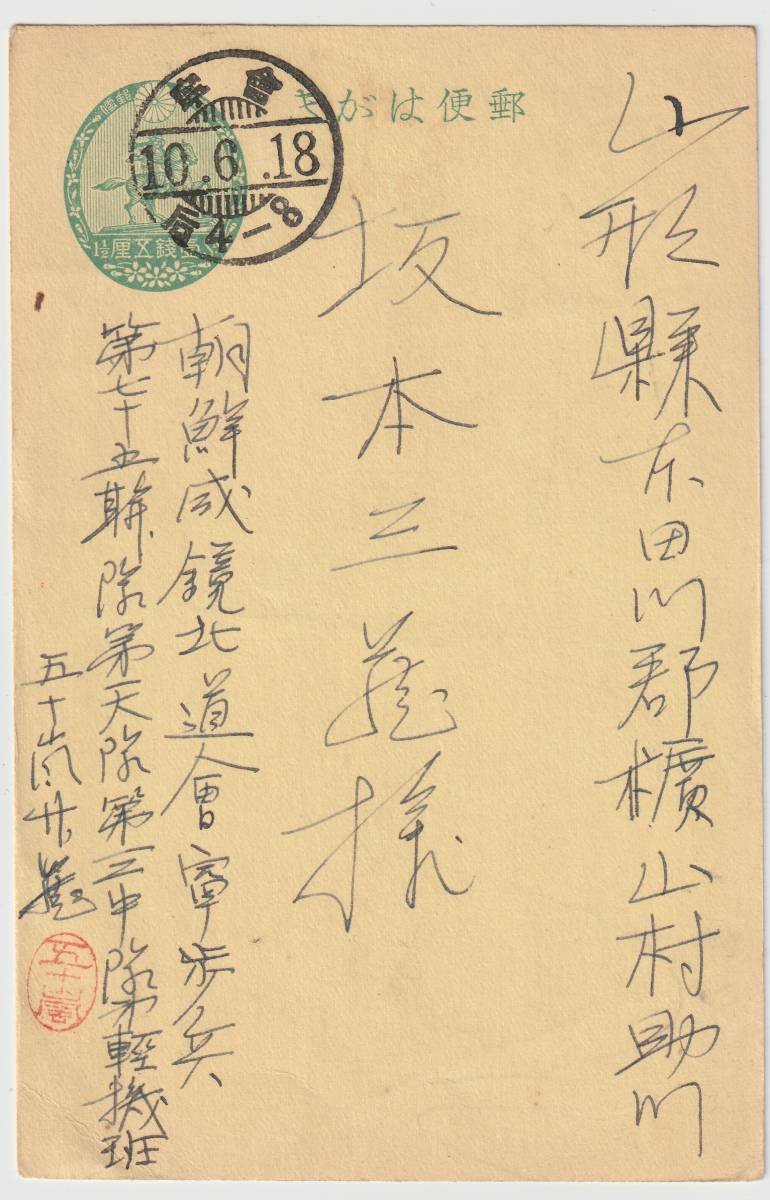 郵便はがき
會寧
10.6.18
后4-8
壹錢五厘 1½
山形縣東田川郡横山村助川
坂本三蔵様
朝鮮咸鏡北道會寧歩兵
第七十五聯隊第一大隊第三中隊第軽機班
五十嵐
五十嵐